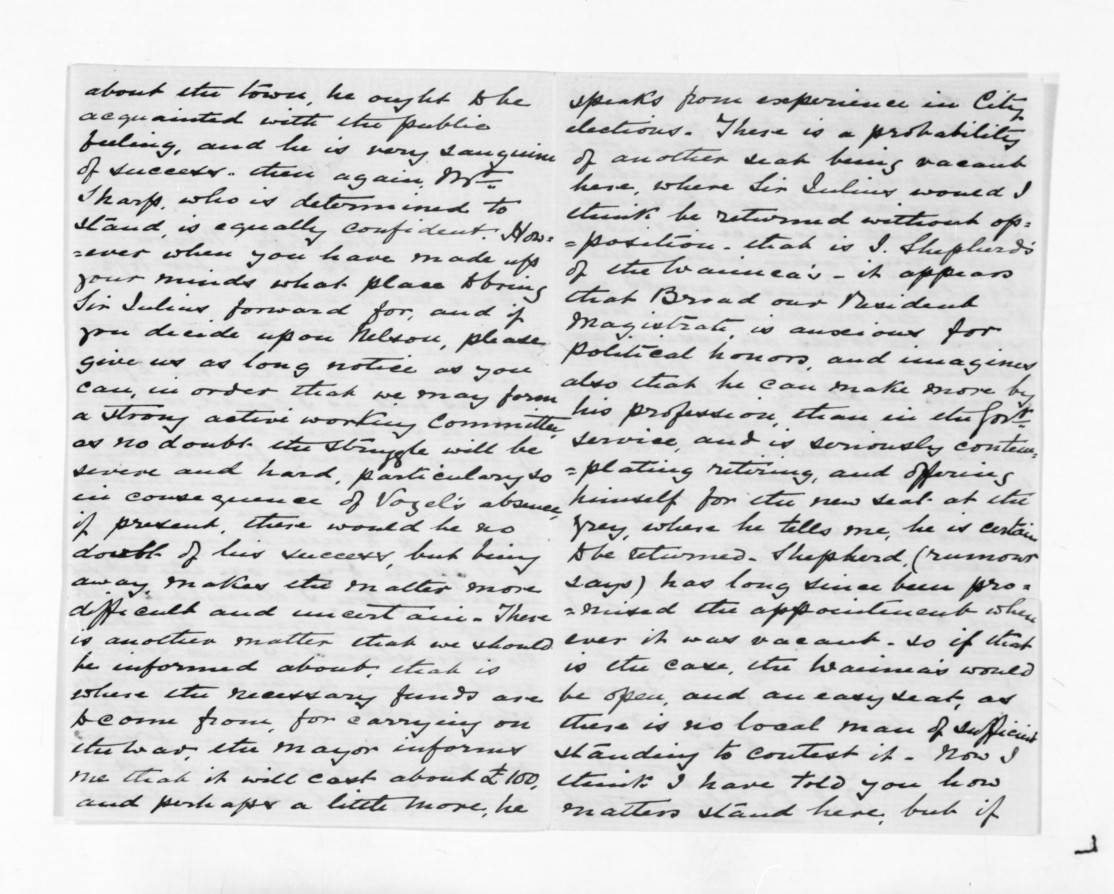 about the town, he ought to be
acquainted with the public
feeling, and he is very sanguine
of success - then again, Mr
Sharp, who is determined to
stand, is equally confident. How=
=ever when you have made up
your minds what place to bring
Sir Julius forward for, and if
you decide upon Nelson, please
give us as long notice as you
can, in order that we may form
a strong active working Committee,
as no doubt the struggle will be
severe and hard, particulary so
in consequence of Vogel's absence,
if present, there would be no
doubt of his success, but being
away, makes the matter more
difficult and uncertain - There
is another matter that we should
be informed about, that is
where the necessary funds are
to come from, for carrying on
the war, the mayor informs
me that it will cost about £100,
and perhaps a little more, he
speaks from experience in City
elections. There is a probability
of another seat being vacant
here, where Sir Julius would I
think be returned without op=
=position - that is J. Shepherd's
of the Waimea's - it appears
that Broad our Resident
Magistrate, is anxious for
political honors, and imagines
also that he can make more by
his profession, than in the Govt
service, and is seriously contem=
=plating retiring, and offering
himself for the new seat at the
Grey, where he tells me, he is certain
to be returned - Shepherd, (rumour
says) has long since been pro=
=mised the appointment when
ever it was vacant - so if that
is the case, the Waimeas would
be open, and an easy seat, as
there is no local man of sufficient
standing to contest it - Now I
think I have told you how
matters stand here, but if